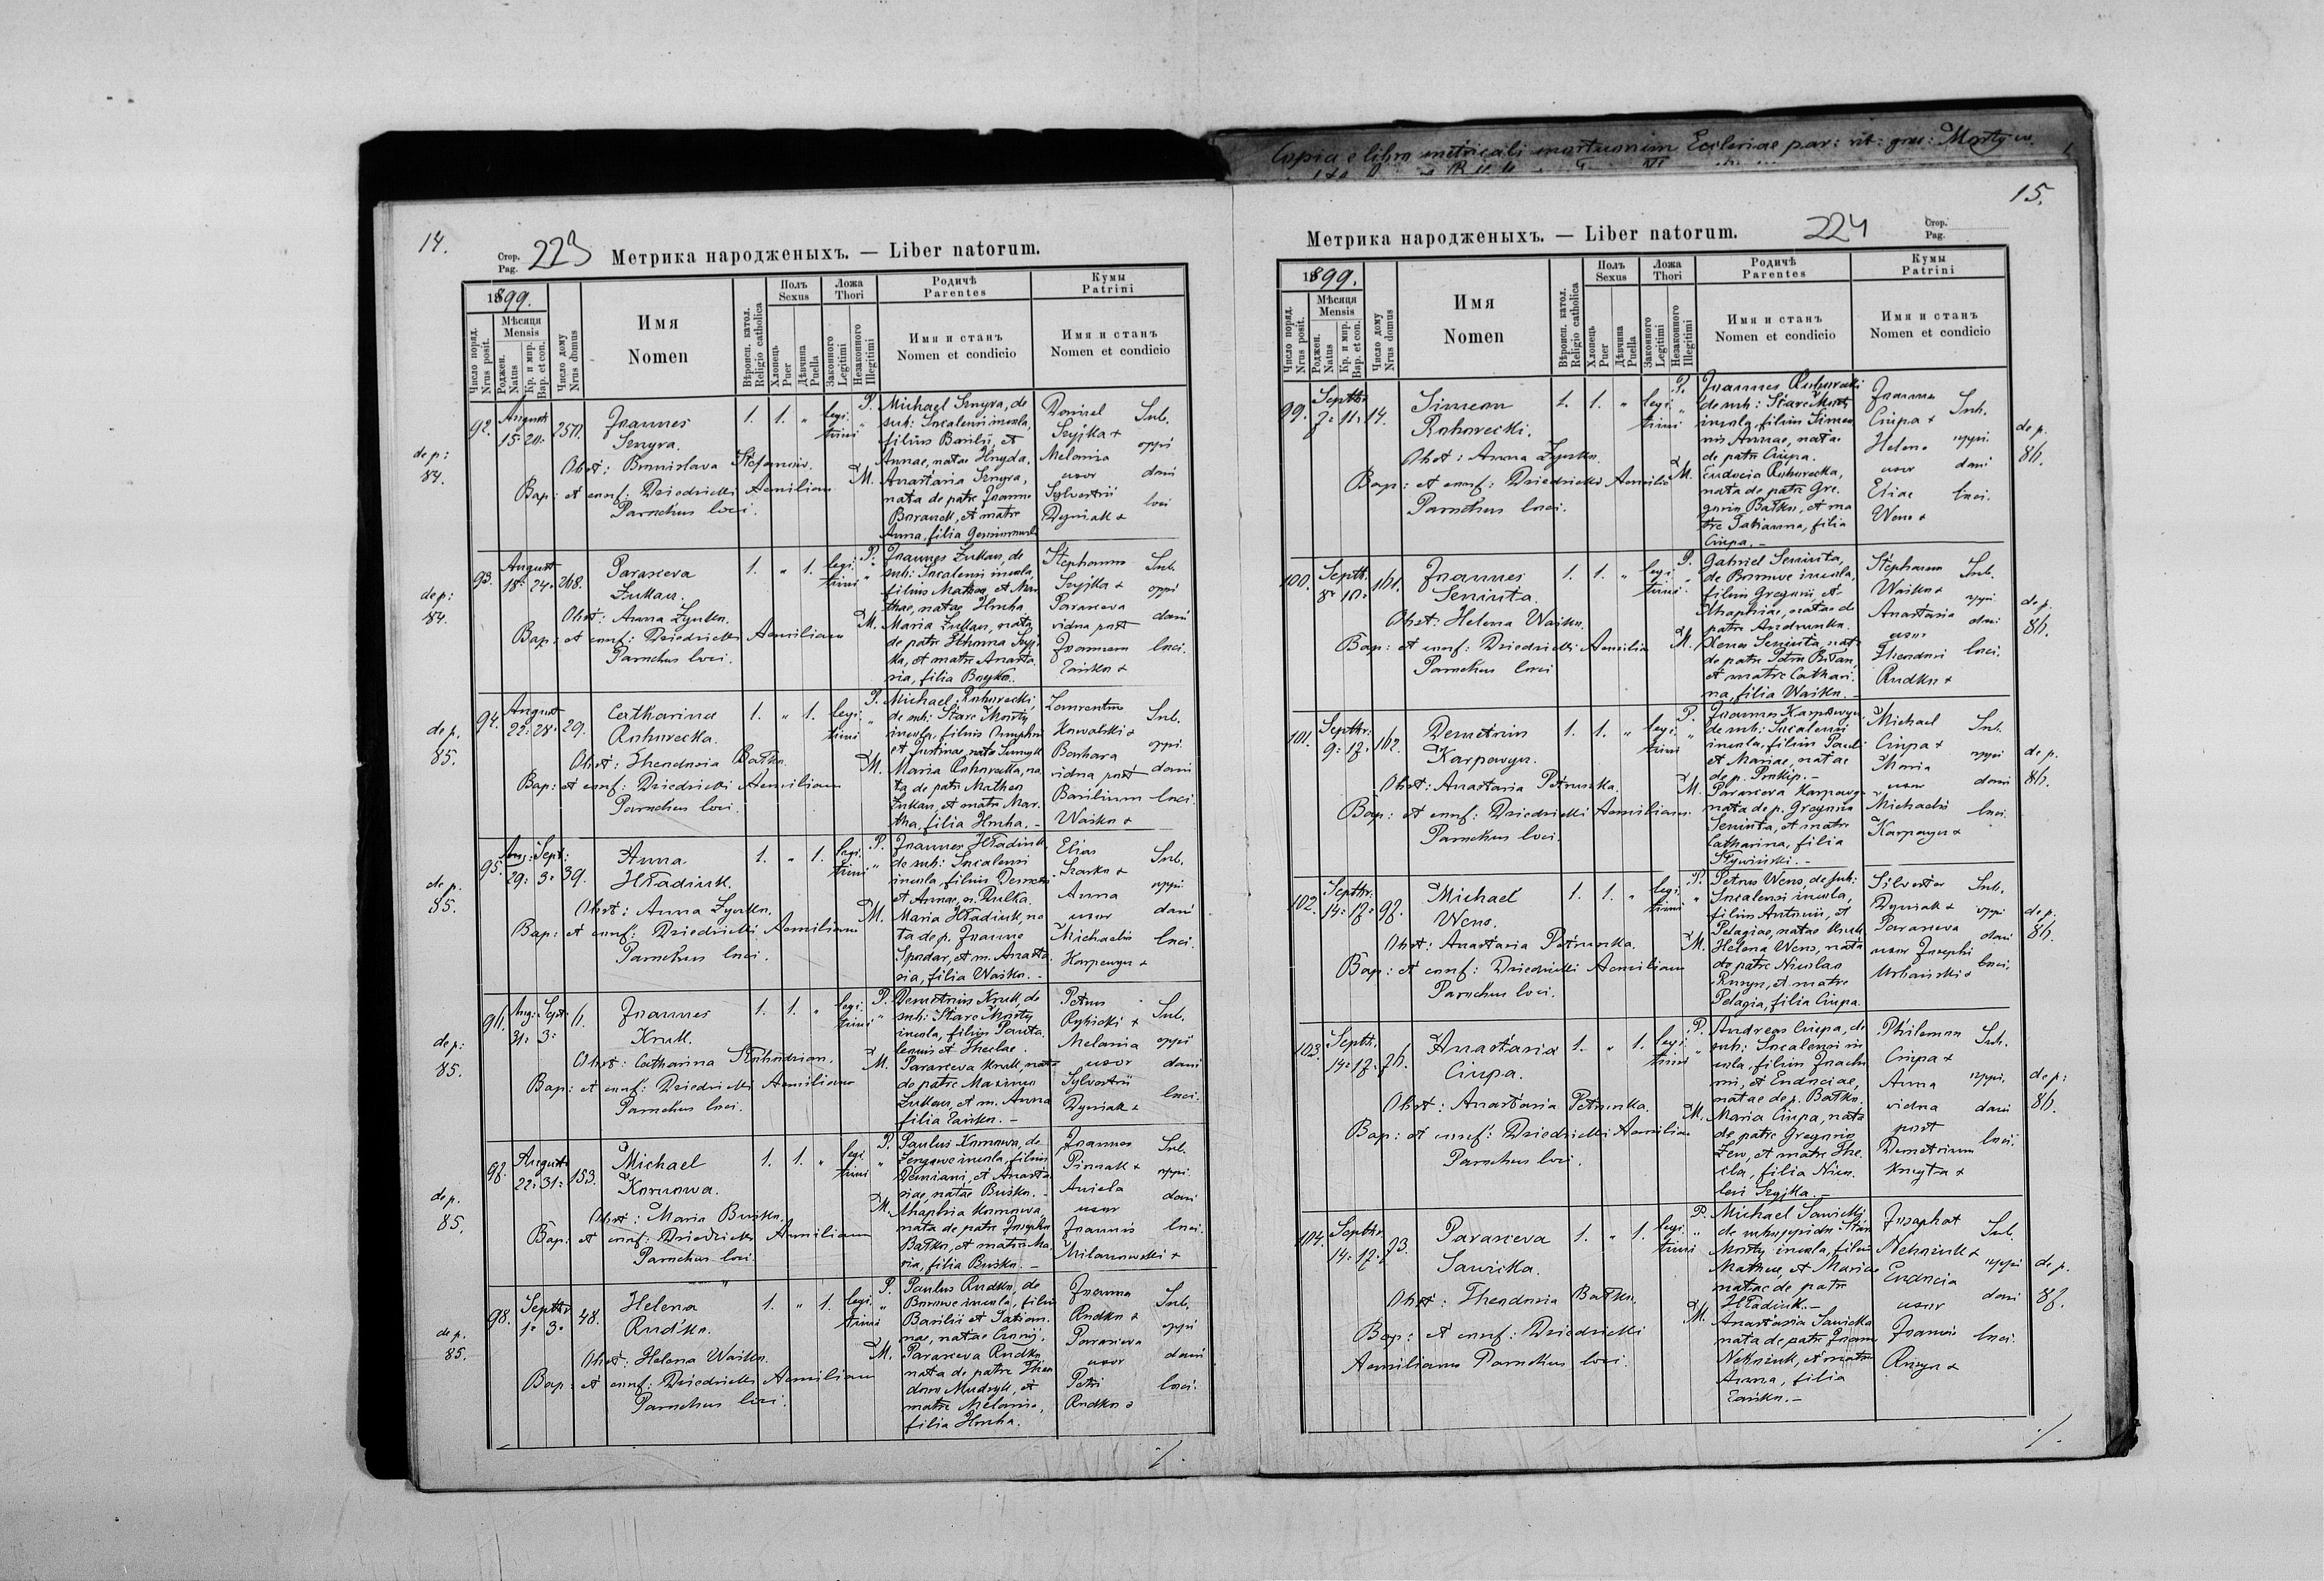 Copia e libro metricali mortuorum Ecclesiae par: rit: grae: Mosty
14.
Стор.
Pag.
223 Метрика народженыхъ. — Liber natorum.
1899.
Число поряд.
Nrus posit.
Мѣсяця
Mensis
Роджен.
Natus
Кр. и мир.
Bap. et con.
Число дому
Nrus domus
Имя
Nomen
Вѣроисп. катол.
Religio catholica
Полъ
Sexus
Хлопець
Puer
Дѣвчина
Puella
Ложа
Thori
Законного
Legitimi
Незаконного
Illegitimi
Родичѣ
Parentes
Имя и станъ
Nomen et condicio
Кумы
Patrini
Имя и станъ
Nomen et condicio
de p:
84.
92. August 15. 20.
Joannes
1. 1. „ legi-
timi „
Obst: Bronislava Stefanow.
Bap: et conf: Dziedzicki Aemilianus
Parochus loci.
P. Michael
sub: Sucalensi incola,
filius Basilii, et
Annae, natae Hnyda.
M. Anastasia
nata de patre Joanne
et matre
Anna, filia
Daniel
Szyjka +
Melania
uxor
Sylvestrii
Dyniak +
Sub.
oppi
dani
loci
de p:
84.
93. August 18. 24. 268.
Parasceva
Żukau.
1. „ 1. legi-
timi „
Obst: Anna Zyntko.
Bap: et conf: Dziedzicki Aemilianus
Parochus loci.
P. Joannes Żukau, de
sub: Sucalensi incola,
filius Mathaei, et Mar
thae, natae Hruha
M. Maria Żukau, nata
de patre Thoma Szyj
ka, et matre Anasta
sia, filia Boyko.
Stephanus
Szyjka +
Parasceva
vidua post
Joannem
Zańko +
Sub.
oppi
dani
loci.
de p.
85.
94. August 22. 28. 29.
Catharina
Rohurecka.
1. „ 1. legi-
timi „
Obst: Theodosia Batko.
Bap: et conf: Dziedzicki Aemilianus
Parochus loci.
P. Michael Rohurecki,
de sub: Stare Mosty
incola, filius Onuphrii
et Justinae, nata
M. Maria Rohurecka, na
ta de patre Mathaeo
Żukau, et matre Mar
tha, filia Hruha. —
Laurentius
Kowalski +
Barbara
vidua post
Basilium
Waśko +
Sub.
oppi
dani
loci.
de p.
85.
95. Aug: Sept: 29. 3. 39.
Anna
Hładiuk.
1. „ 1. legi-
timi „
Obst: Anna Zyntko.
Bap: et conf: Dziedzicki Aemilianus
Parochus loci.
P. Joannes Hładiuk
de sub: Sucalensi
incola, filius Demetrii
et Annae, n. Rulka.
M. Maria Hładiuk, na
ta de p. Joanne
Spodar, et m. Anasta
sia, filia Waśko. —
Elias
Anna
uxor
Michaelis
Karpowycz +
Sub.
oppi
dani
loci.
de p:
85.
96. Aug: Sept: 31. 3. 6.
Joannes
Kruk.
1. 1. „ legi-
timi „
Obst: Catharina
Bap: et conf: Dziedzicki Aemilianus
Parochus loci.
P. Demetrius Kruk, de
sub: Stare Mosty
incola, filius Panta
lemis et Theclae.
M. Parasceva Kruk, nata
de patre Maximo
Żukau, et m. Anna
filia Zańko. —
Petrus
Rybicki +
Melania
uxor
Sylvestrii
Dyniak +
Sub.
oppi
dani
loci.
de p.
85.
98. August 22. 31. 153.
Michael
Konowa.
1. 1. „ legi-
timi „
Obst: Maria Buśko.
Bap: et conf: Dziedzicki Aemilianus
Parochus loci.
P. Paulus Konowa, de
incola, filius
Damiani, et Anasta
siae, natae Buśko. —
M. Ahaphia Konowa,
nata de patre Josepho
Batko, et matre Ma
ria, filia Buśko. —
Joannes
Pinnak +
Aniela
uxor
Joannis
Milanowski +
Sub.
oppi
dani
loci.
de p.
85.
98. Septbr 1. 3. 48.
Helena
Rudko.
1. „ 1. legi-
timi „
Obst: Helena Waśko.
Bap: et conf: Dziedzicki Aemilianus
Parochus loci.
P. Paulus Rudko, de
incola, filius
Basilii et Tatian
nae, natae
M. Parasceva Rudko
nata de patre Theo
doro Mudryk, et
matre Melania,
filia Hruha.
Joannes
Rudko +
Parasceva
uxor
Petri
Rudko +
Sub.
oppi
dani
loci.
./.
15.
Метрика народженыхъ. — Liber natorum. 224
Стор.
Pag.
1899.
Число поряд.
Nrus posit.
Мѣсяця
Mensis
Роджен.
Natus
Кр. и мир.
Bap. et con.
Число дому
Nrus domus
Имя
Nomen
Вѣроисп. катол.
Religio catholica
Полъ
Sexus
Хлопець
Puer
Дѣвчина
Puella
Ложа
Thori
Законного
Legitimi
Незаконного
Illegitimi
Родичѣ
Parentes
Имя и станъ
Nomen et condicio
Кумы
Patrini
Имя и станъ
Nomen et condicio
99. Septbr. 7. 11. 14.
Simeon
Rohurecki.
1. 1. „ legi-
timi „
Obst: Anna Zyntko.
Bap: et conf: Dziedzicki Aemilia
Parochus loci.
P. Joannes Rohurecki
de sub: Stare Mosty
incola, filius Simeo
nis Annae, nata
de patre Ciupa.
M. Eudocia Rohurecka,
nata de patre Gre
gorio Batko, et ma
tre Tatianna, filia
Ciupa. —
Joannes
Ciupa +
Helena
uxor
Eliae
Wens +
Sub.
oppi.
dani
loci.
de p.
86.
100. Septbr. 8. 10. 161.
Joannes
Seniuta.
1. 1. „ legi-
timi „
Obst: Helena Waśko.
Bap: et conf: Dziedzicki Aemilia
Parochus loci
P. Gabriel Seniuta,
de incola,
filius Gregorii, et
Ahaphiae, natae de
patre Andrunko.
M. Xenia Seniuta, nata
de patre Petro
et matre Cathari
na, filia Waśko. —
Stephanus
Waśko +
Anastasia
uxor
Theodori
Rudko +
Sub.
oppi.
dani
loci.
de p.
86.
101. Septbr. 9. 17. 162.
Demetrius
Karpowycz.
1. 1. „ legi-
timi „
Obst: Anastasia Petrunka.
Bap: et conf: Dziedzicki Aemilianus
Parochus loci.
P. Joannes Karpowycz,
de sub: Sucalensi
incola, filius Pauli
et Mariae, natae
de p. Prokip. —
M. Parasceva Karpowycz
nata de p. Gregorio
Seniuta, et matre
Catharina, filia
Michael
Ciupa +
Maria
uxor
Michaelis
Karpowycz +
Sub.
oppi
dani
loci.
de p.
86.
102. Septbr. 14. 17. 97.
Michael
Wens.
1. 1. „ legi-
timi „
Obst: Anastasia Petrunka.
Bap: et conf: Dziedzicki Aemilianus
Parochus loci.
P. Petrus Wens, de sub:
Sucalensi incola,
filius Antonii, et
Pelagiae, natae Kruk
M. Helena Wens, nata
de patre Nicolao
et matre
Pelagia, filia Ciupa.
Silvester
Dyniak +
Parasceva
uxor Josephi
Urbański +
Sub.
oppi
dani
loci.
de p.
86.
103. Septbr. 14. 17. 76.
Anastasia
Ciupa.
1. „ 1. legi-
timi „
Obst: Anastasia Petrunka.
Bap: et conf: Dziedzicki Aemilia
Parochus loci.
P. Andreas Ciupa, de
sub: Sucalensi in
cola, filius Joachi
mi, et Eudociae,
natae de p. Batko.
M. Maria Ciupa, nata
de patre Gregorio
Lew, et matre The
cla, filia Nico
lai Szyjka. —
Philemon
Ciupa +
Anna
vidua
post
Demetrium
Knyga +
Sub.
oppi.
dani
loci.
de p:
86.
104. Septbr. 14. 17. 73.
Parasceva
Sawicka.
1. „ 1. legi-
timi „
Obst: Theodosia Batko.
Bap: et conf: Dziedzicki
Aemilianus Parochus loci.
P. Michael Sawicki,
de
Mosty incola, filius
Mathaei, et Mariae
natae de patre
Hładiuk. —
M. Anastasia Sawicka
nata de patre Joanne
Nehniuk, et matre
Anna, filia
Zańko. —
Josaphat
Nehniuk +
Eudocia
uxor
Joannis
Sub.
oppi
dani
loci.
de p.
87.
./.